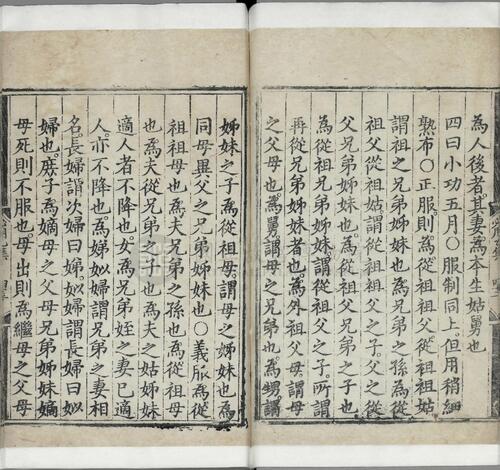 為人後者其妻為本生姑舅也
四曰小功五月○服制同上但用稍細
熟布○正服則為從祖祖父從祖祖姑
謂祖之兄弟姊妹也為兄弟之孫為從
祖父從祖姑謂從祖祖父之子父之從
父兄弟姊妹也為從父兄弟之子也
為從祖兄弟姊妹謂從祖父之子所謂
再從兄弟姊妹者也為外祖父母謂母
之父母也為舅謂母之兄弟也為甥謂
姊妹之子為從祖母謂母之姊妹也為
同母異父之兄弟姊妹也○義服為從
祖祖母也為夫兄弟之孫也為從祖母
也為夫從兄弟之子也為夫之姑姊妹
適人者不降也女為兄弟姪之妻已適
人亦不降也為娣姒婦謂兄弟之妻相
名長婦謂次婦曰娣姒婦謂長婦曰姒
婦也庶子為嫡母之父母兄弟姊妹嫡
母死則不服也母出則為繼母之父母